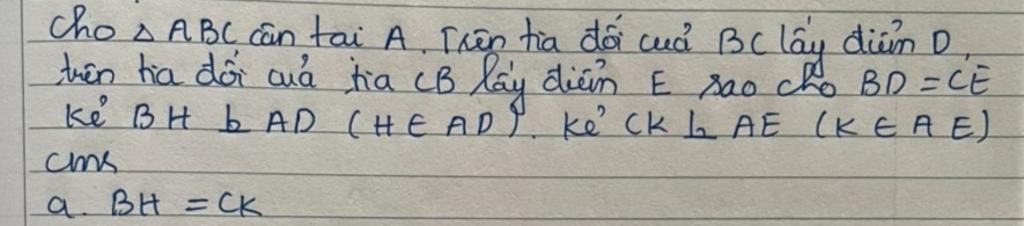 Cho △ ABC cân tai A. Trên tia đối cuả BC lấy điểm D,
trên tia đối cuả tia CB lấy điểm E sao cho BD = CE
Kẻ BH ⊥ AD (H ∈ AD). Kẻ CK ⊥ AE (K ∈ A E)
cm
a. BH = CK